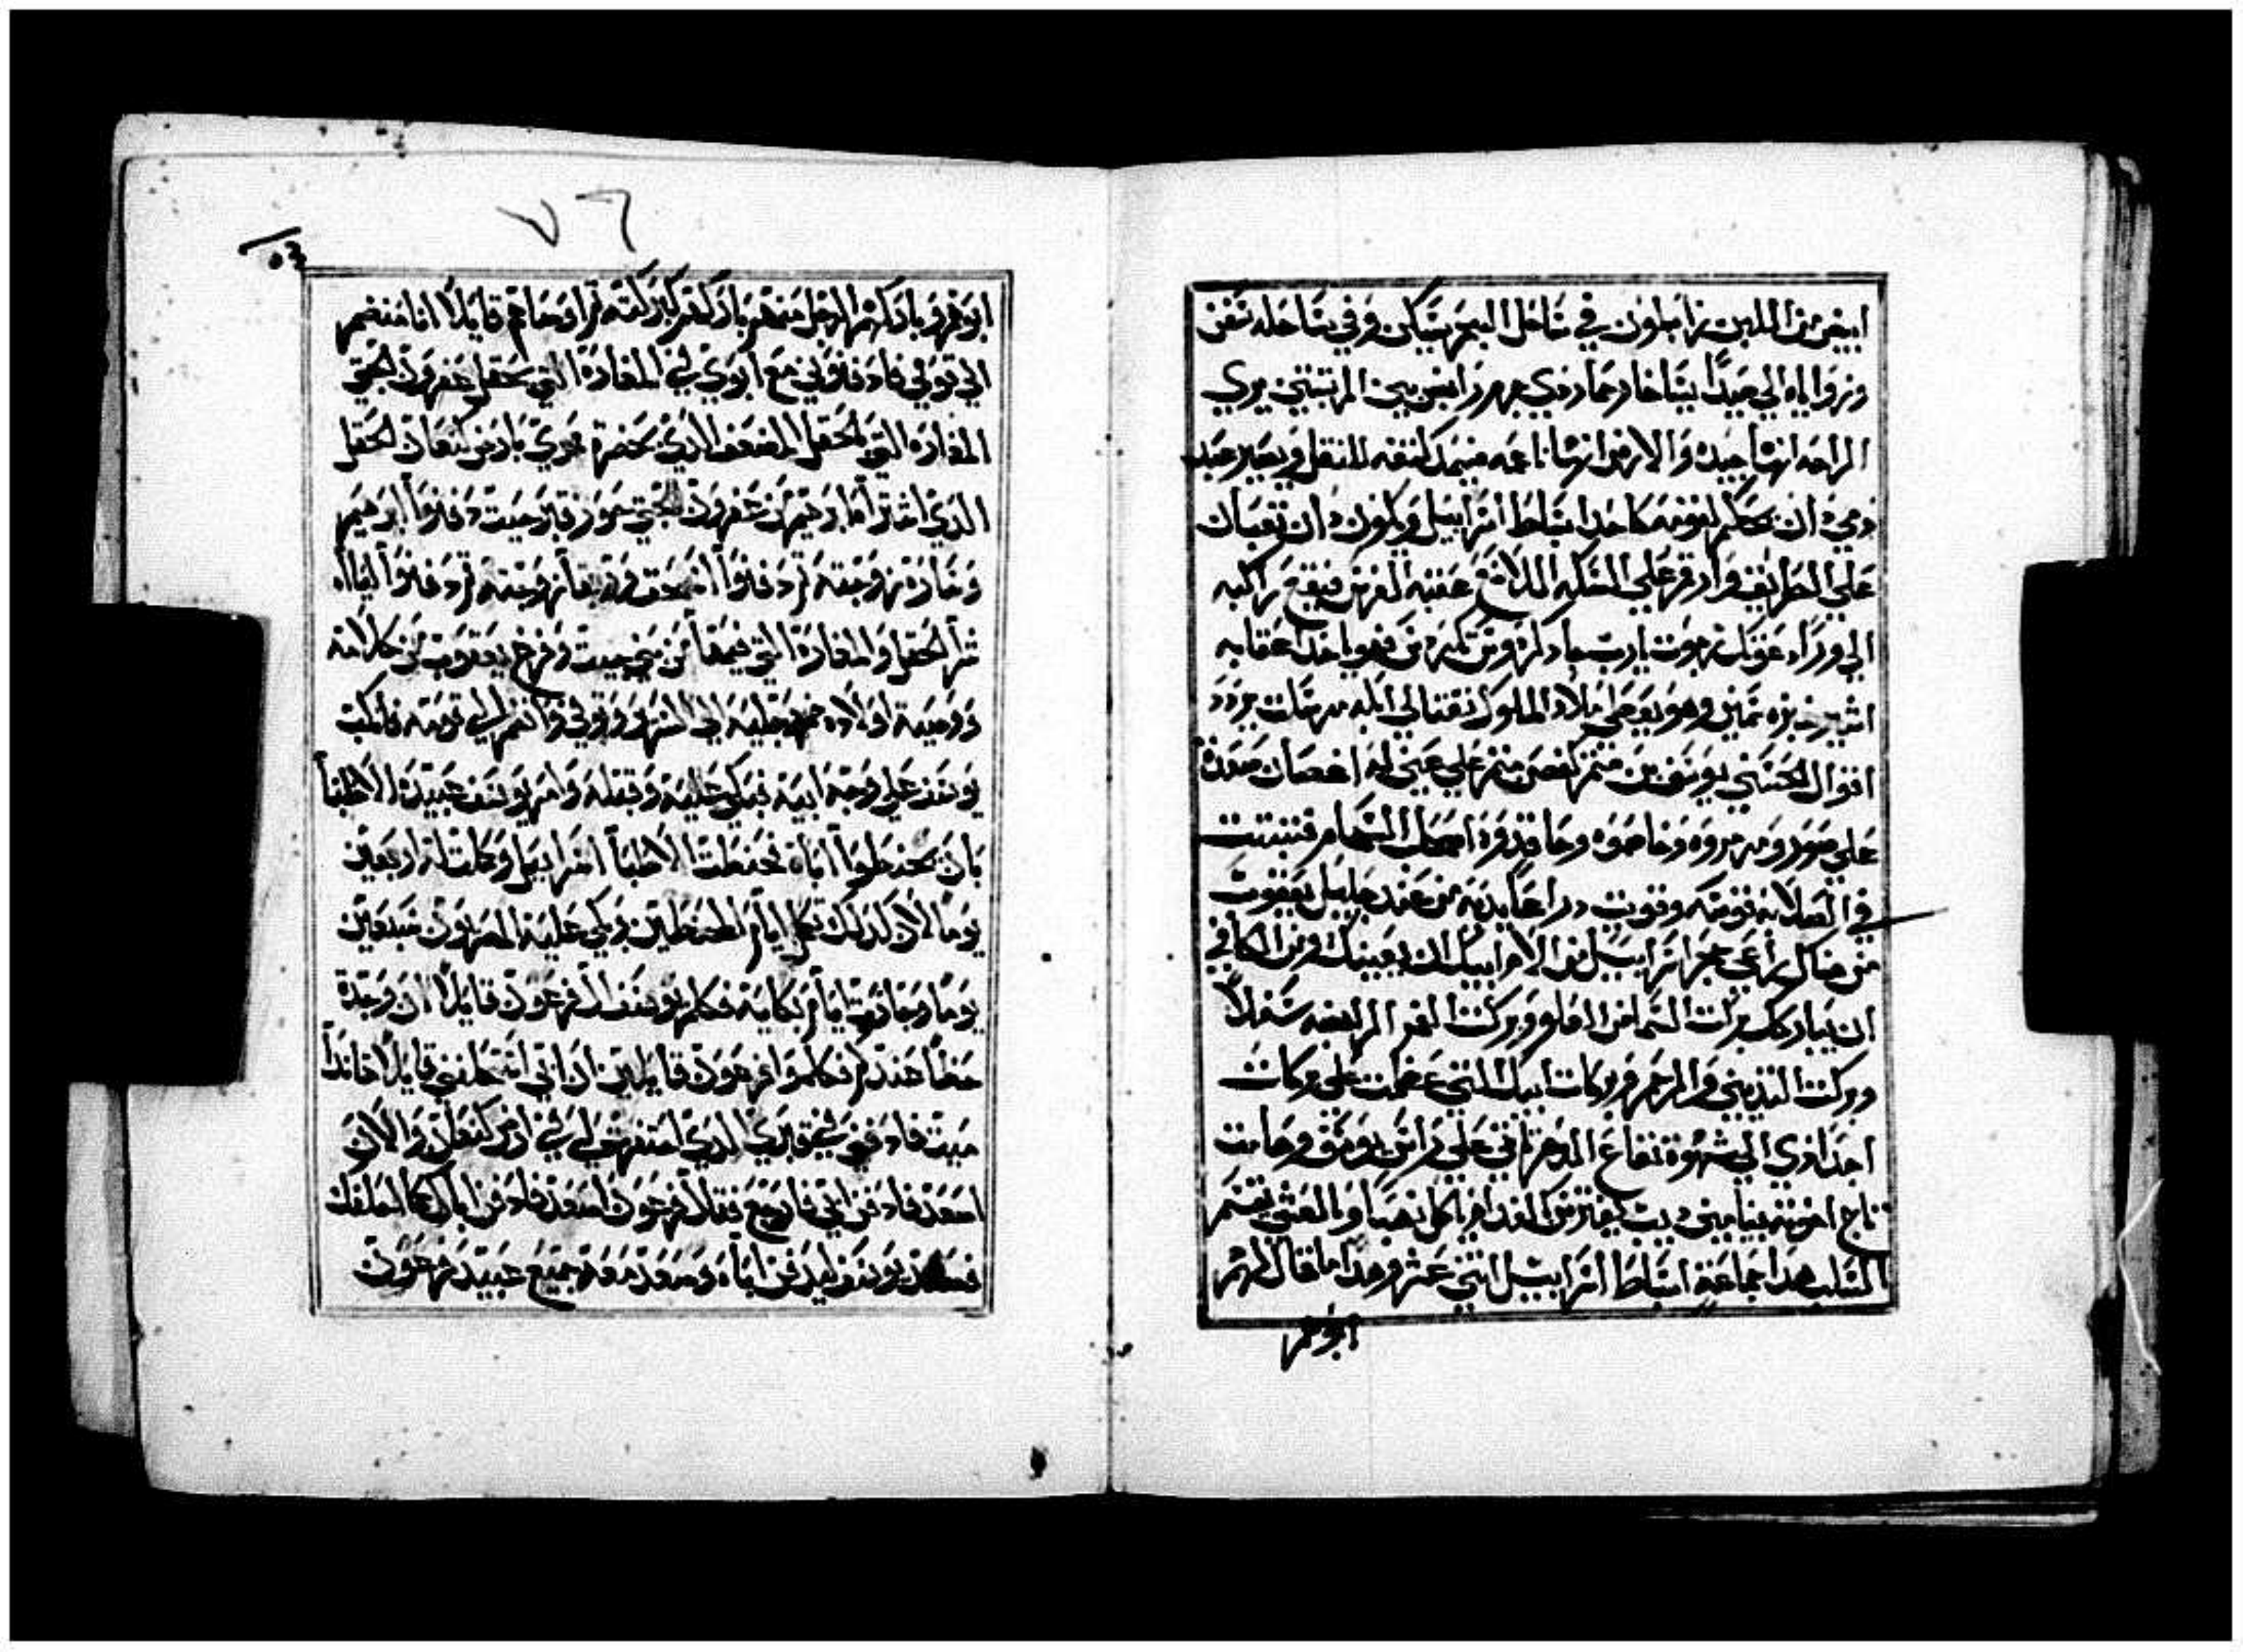 ابيض من اللبن زابلون في ساحل البحر يسكن وفي ساحله سفن
وزواياه الي صيدا يساخار حمار ذي جهر رابض بين المرتبتين يري
الراحه انها جيده والارض انها ناعمه فيمد كتفه للنقل ويصير عبد
ذمي دان يحكم لقومه كاحد اسباط اسراييل ويكون دان ثعبان
علي الطريق وارقم علي السكه اللادغ عقبه الفرس فيقع راكبه
الي وراه غوثك رجوت يارب جاد كردوس تكردس فهو ياخد اعقابه
اشير خبزه سمين وهو يعطي ملاد الملوك نفتالي ايله مرسات
اقوال الحسني يوسف بن مثمر كغصن مثمر علي عين له اغصان صعدة
علي سور ومرمروه وخاصموه وحاقدوه اصحاب السهام فتثبتت
في الصلابه قوسه وقويت دراعا يديه من عند جليل يعقوب
من هناك راعي حجر اسراييل من الاه ابيك ان يعينك ومن الكافي
ان يباركك بركات السما من العلو وبركت الغمر الرابضه سفلا
وبركت الثديين والرحم وبركات ابيك التي عظمت علي بركات
اجدادي الي شهوة بقاع الدهر تاتي علي راس يوسف وهامت
تاج اخوته بنيامين ديب يفترس الغداه ياكل نهبا وبالعشي يقسم
السلب هدا جماعة اسباط اسراييل اثني عشر وهدا ما قال لهم
ابوهم
٧٦
٥٣
ابوهم وباركهم الرجل منهم باركهم كبركته ثم اوصاهم قايلا انا منضم
الي قومي فادفنوني مع ابوي في المغارة التي بحقل عفرون الحتي
المغارة التي بحقل المضعف الذي بحضرة ممري بارض كنعان الحقل
الذي اشتراه ابرهيم من عفرون الحتي حوز قبر حيت دفنوا ابرهيم
وسارة زوجته ثم دفنوا اسحق ورفقا زوجته ثم دفنوا لياه
شرا الحقل والمغارة التي فيها من بني حيت وفرغ يعقوب من كلامه
ووصية اولاده ضم رجليه الي السرير وتوفي وانضم الي قومه فانكب
يوسف علي وجه ابيه فبكي عليه وقبله وامر يوسف عبيده الاطبا
بان يحنطوا اباه فحنطت الاطبا اسراييل وكملت له اربعين
يوما لان كذلك تكمل ايام المحنطين وبكي عليه المصريون سبعين
يوما وجازت ايام بكايه فكلم يوسف ال فرعون قايلا ان وجدة
حظا عندكم فكلموا فرعون قايلين ان ابي استحلفني قايلا هاندا
ميت فادفني في قبري الذي احتفرته لي في ارض كنعان والان
اصعد فادفن ابي فارجع فقال فرعون اصعد فادفن اباك كما احلفك
فصعد يوسف ليدفن اباه وصعد معه جميع عبيد فرعون